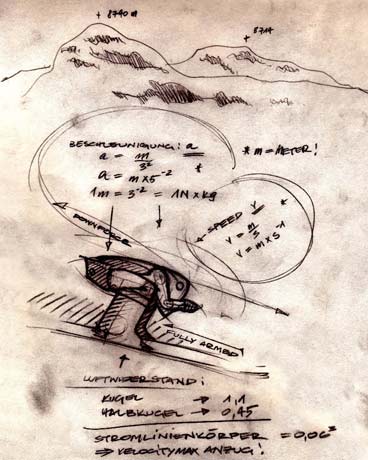 + 8740 m
+ 8714
BESCHLEUNIGUNG: a
a = m/s²
a = m × s⁻²
* m = METER!
*
1m = s⁻² = 1N × kg
DOWNFORCE
SPEED V
*
V = m/s
V = m × s⁻¹
FULLY ARMED
LUFTWIDERSTAND:
KUGEL → 1,1
HALBKUGEL → 0,45
STROMLINIENKÖRPER = 0,06
⇒ VELOCITYMAX ANZUG!